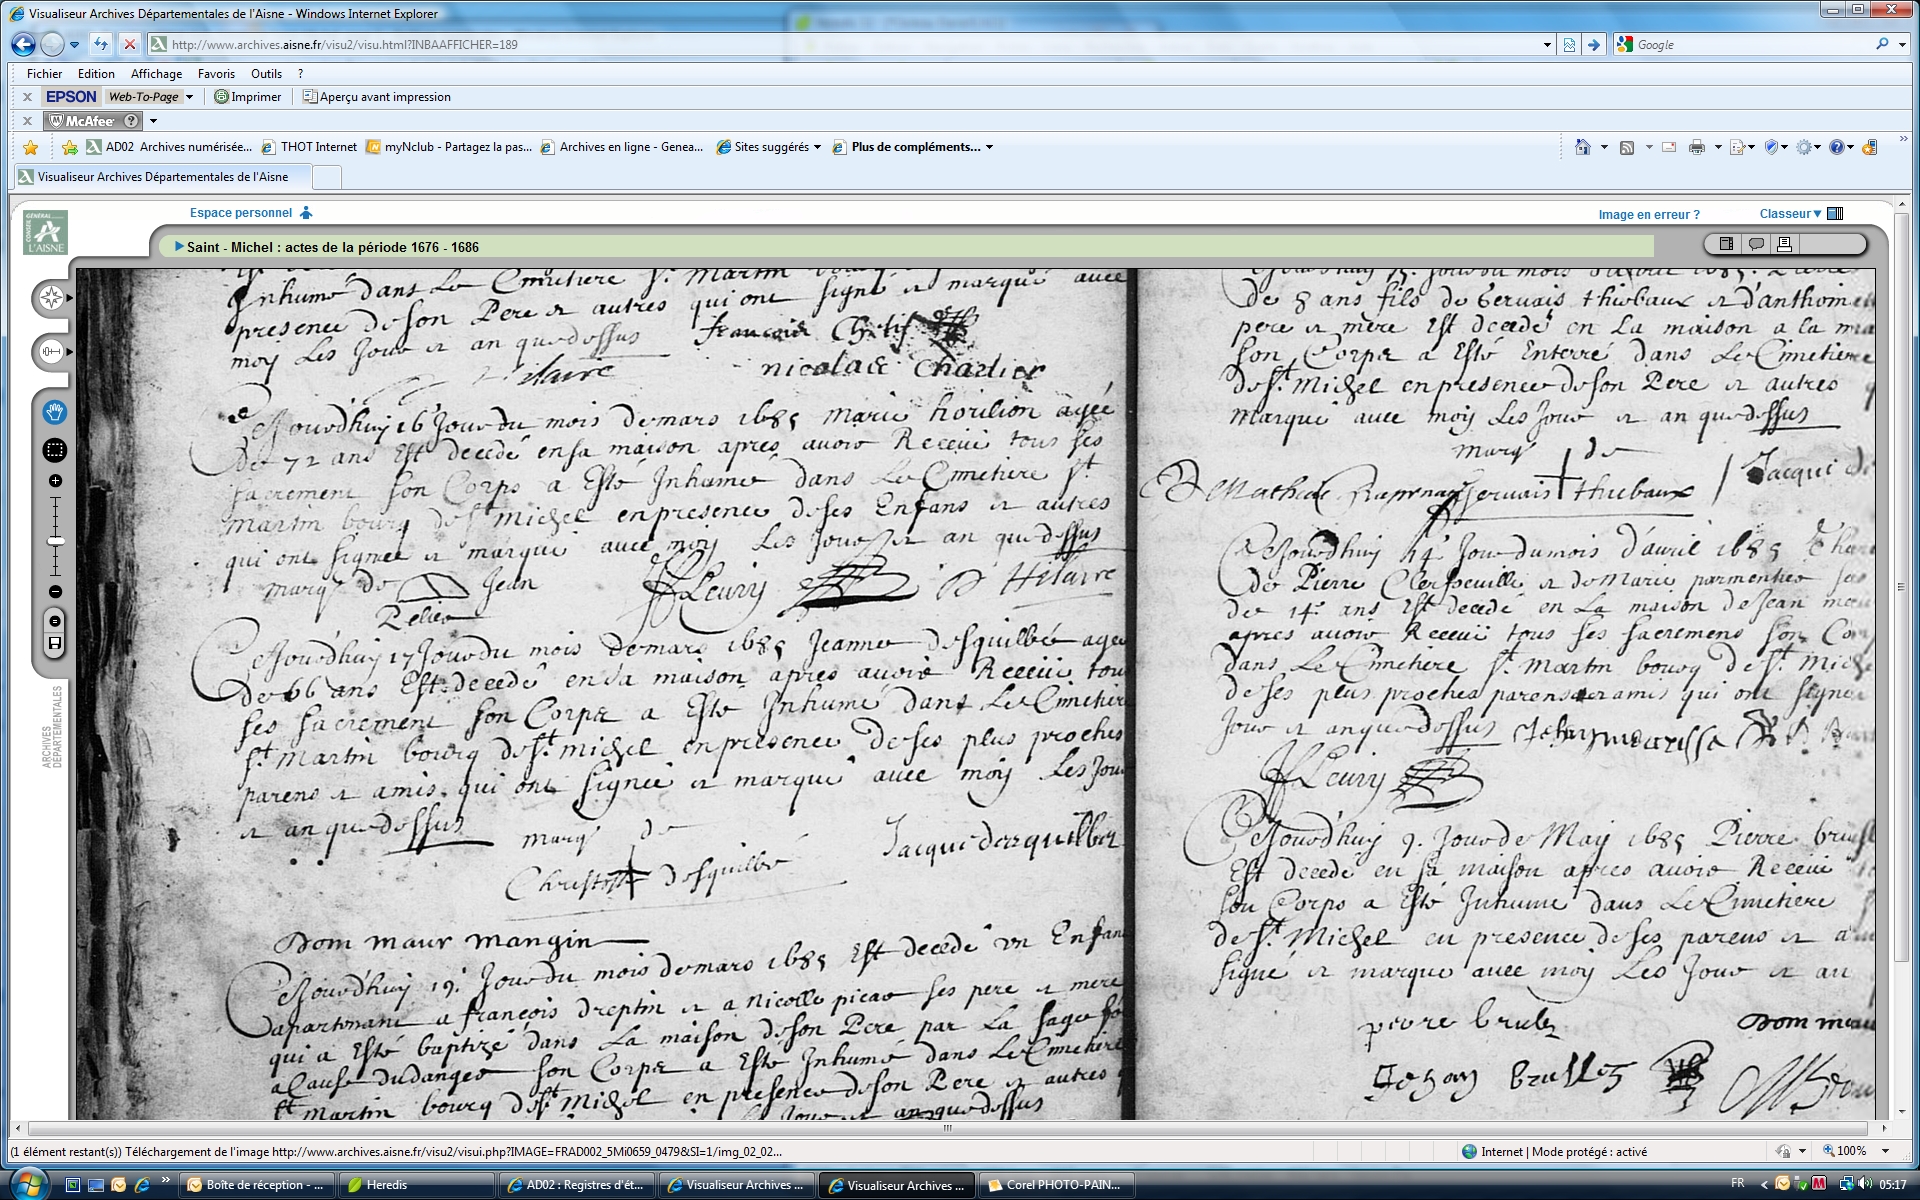 Visualiseur Archives Départementales de l'Aisne - Windows Internet Explorer
http://www.archives.aisne.fr/visu2/visu.html?INBAAFFICHER=189
Google
Fichier Edition Affichage Favoris Outils ?
x EPSON Web-To-Page Imprimer Aperçu avant impression
x McAfee ?
AD02 Archives numérisée... THOT Internet myNclub - Partagez la pas... Archives en ligne - Genea... Sites suggérés Plus de compléments... »
Visualiseur Archives Départementales de l'Aisne
CONSEIL GÉNÉRAL L'AISNE
Espace personnel
Image en erreur ? Classeur
Saint - Michel : actes de la période 1676 - 1686
ARCHIVES DÉPARTEMENTALES
Inhumé dans Le Cimetiere st Martin
presence de son Pere et autres qui ont signé et marqué avec
moy Les Jour et an que dessus françois Chrétif
hilaire nicolace Charlier
Cejourd'huy 16 Jour du mois de mars 1685 marie horilion agée
de 72 ans Est decedé en sa maison apres avoir Receüe tous ses
sacrement son Corps a Esté Inhumé dans Le Cimetiere st
martin bourg de st michel en presence de ses Enfans et autres
qui ont signée et marqué avec moy Les Jour et an que dessus
marq de Jean fleury D hilaire
Pelier
Cejourd'huy 17 Jour du mois de mars 1685 Jeanne desquilbée agee
de 66 ans Est decedé en sa maison apres avoir Receüe tou
ses sacrement son Corps a Esté Inhumé dans Le Cimetiere
st. Martin bourg de st. michel en presence de ses plus proches
parens et amis qui ont signeé et marqué avec moy Les Jour
et an que dessus marq de Jacque derquilbet
Christoffe desquilbée
Dom maur mangin
Cejourd'huy 19. Jour du mois de mars 1685 Est decedé un Enfan
apartenant a françois dreptin et a nicolle picar ses pere et mere
qui a Esté baptizé dans La maison de son Pere par La sage
a Cause du danger son Corps a Esté Inhumé dans Le Cimetiere
st martin bourg de st Michel en presence de son Pere et autres
Jour et an que dessus
de 8 ans fils de Gervais thiebaux et d'anthoin
pere et mere Est decedé en La maison a la
son Corps a Esté Enterré dans Le Cimetiere
de st. Michel en presence de son Pere et autres
marqué avec moy Les Jour et an que dessus
marq de
Gervais thiebaux Jacque
Cejourd'huy 14e Jour du mois d'avril 1685
de Pierre et de Marie parmentier
de 14 ans Est decedé en La maison de Jean
apres avoir Receüe tous ses sacremens son Cor
dans Le Cimetiere st. Martin bourg de st. Mich
de ses plus proches parens et amis qui ont signe
Jour et an que dessus
fleury
Cejourd'huy 9. Jour de May 1685 Pierre brus
Est decedé en sa maison apres avoir Receüe
son Corps a Esté Inhumé dans Le Cimetiere
de st. Michel en presence de ses parens et a
signé et marque avec moy Les Jour et an
Dom mau
(1 élément restant(s)) Téléchargement de l'image http://www.archives.aisne.fr/visu2/visui.php?IMAGE=FRAD002_5Mi0659_0479&SI=1/img_02_02...
Internet | Mode protégé : activé 100%
Boîte de réception - ... Heredis AD02 : Registres d'ét... Visualiseur Archives ... Visualiseur Archives ... Corel PHOTO-PAIN... FR 05:17